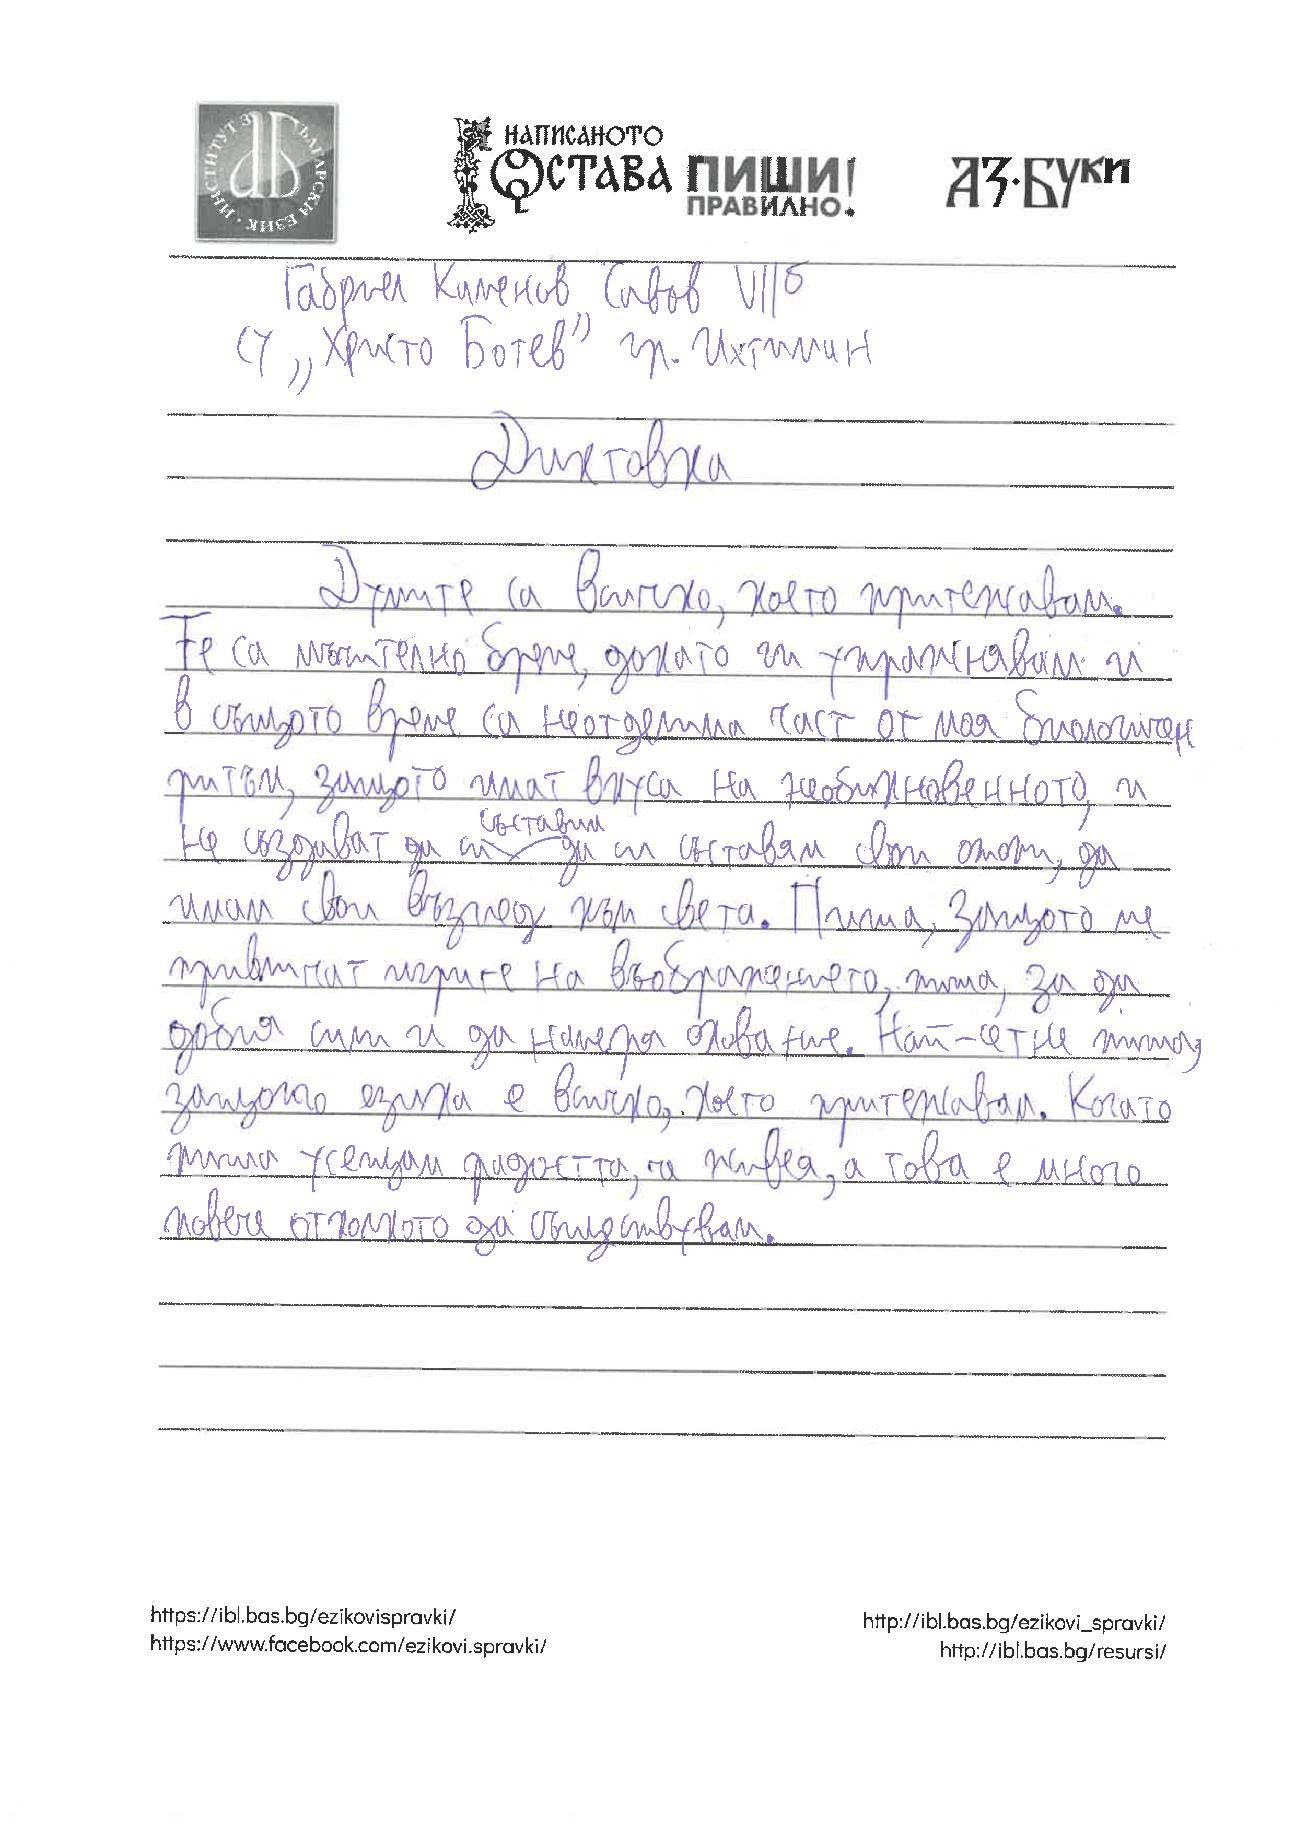 ИНСТИТУТ ЗА БЪЛГАРСКИ ЕЗИК
НАПИСАНОТО
ОСТАВА ПИШИ!
ПРАВИЛНО.
АЗ·БУКИ
Габриел Каменов Савов VIIб
СУ „Христо Ботев" гр. Ихтиман
Диктовка
Думите са всичко, което притежавам.
Те са мъчително бреме, докато ги упражнявам и
в същото време са неотделима част от моя биологичен
ритъм, защото имат вкуса на необикновенното, и
ме създават да си съставям да си съставям свои
имам свои възглед към света. Пиша, защото ме
привличат игрите на въображението, пиша, за да
добия сили и да намеря упование. Най-сетне пиша,
защото езика е всичко, което притежавам. Когато
пиша усещам радостта, че живея, а това е много
повече отколкото да съществувам.
https://ibl.bas.bg/ezikovispravki/
https://www.facebook.com/ezikovi.spravki/
http://ibl.bas.bg/ezikovi_spravki/
http://ibl.bas.bg/resursi/